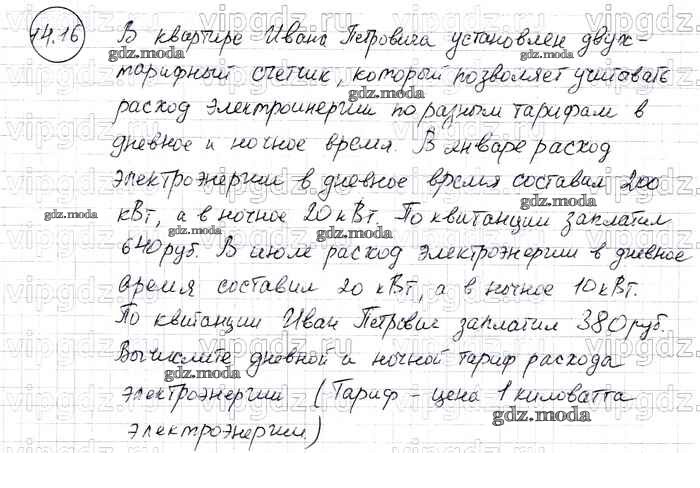 14.16 В квартире Ивана Петровича установлен двух-
тарифный счетчик, который позволяет учитавать
расход электроинергии по разным тарифам в
дневное и ночное время. В январе расход
электроэнергии в дневное время составил 200
кВт, а в ночное 20 кВт. По квитанции заплатил
640 руб. В июле расход электроэнергии в дневное
время составил 20 кВт, а в ночное 10 кВт.
По квитанции Иван Петрович заплатил 380 руб.
Вычислите дневной и ночной тариф расхода
электроэнергии (Тариф – цена 1 киловатта
электроэнергии)